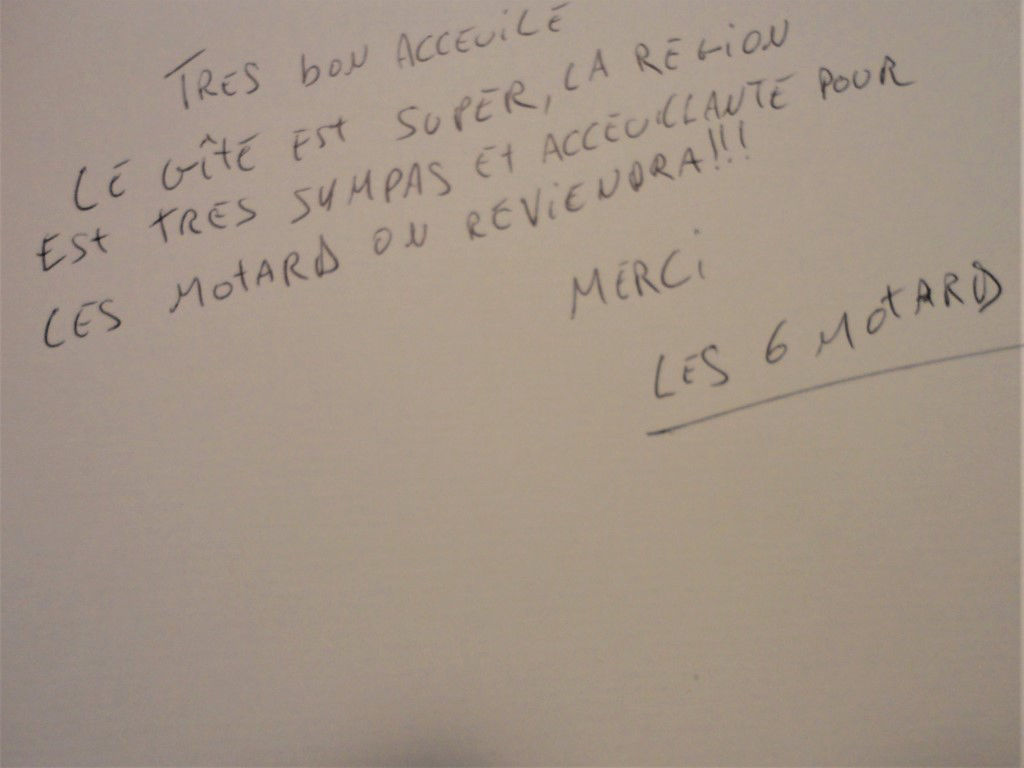 TRES bON ACCEUILE
LE GÎTE ESt SUPER, LA REGION
ESt tRES SYMPAS Et ACCEUILLANTE POUR
LES MOtARD ON REVIENDRA!!!
MERCi
LES 6 MOtARD